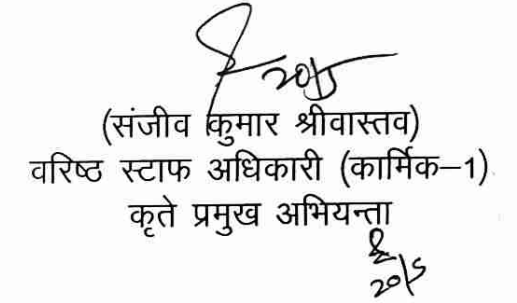 20/5
(संजीव कुमार श्रीवास्तव)
वरिष्ठ स्टाफ अधिकारी (कार्मिक–1)
कृते प्रमुख अभियन्ता
20/5